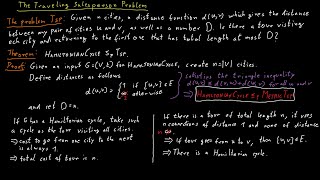 The Traveling Salesperson Problem
The problem TSP: Given n cities, a distance function d(u,v) which gives the distance
between any pair of cities u and v, as well as a number D. Is there a tour visiting
each city and returning to the first one that has total length at most D?
Theorem: HAMILTONIANCYCLE ≤p TSP.
Proof: Given an input G=(V,E) for HAMILTONIANCYCLE, create n=|V| cities.
Define distances as follows
d(u,v) = { 1 if {u,v}∈E
otherwise
and set D=n.
satisfies the triangle inequality
⇒ HAMILTONIANCYCLE ≤p METRIC TSP
If G has a Hamiltonian cycle, take such
a cycle as the tour visiting all cities.
⇒ cost to go from one city to the next
is always 1.
⇒ total cost of tour is n.
If there is a tour of total length n, it uses
n connections of distance 1 and none of distance
⇒ if tour goes from u to v, then {u,v}∈E.
⇒ There is a Hamiltonian cycle.